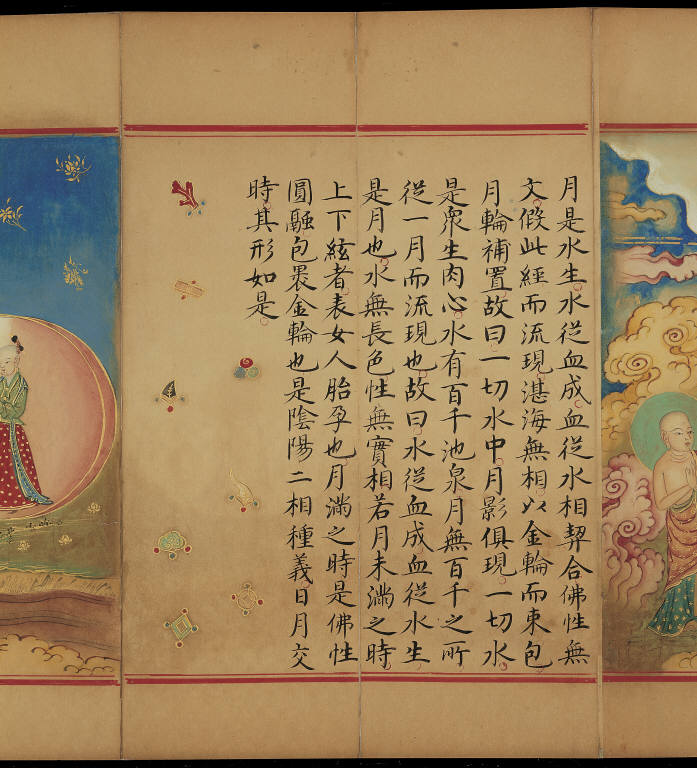 月是水生水從血成血從水相契合佛性無
文假此經而流現湛海無相以金輪而束包
月輪補置故曰一切水中月影俱現一切水
是眾生肉心水有百千池泉月無百千之所
從一月而流現也故曰水從血成血從水生
是月也水無長色性無實相若月未滿之時
上下絃者表女人胎孕也月滿之時是佛性
圓融包褁金輪也是陰陽二相種義日月交
時其形如是